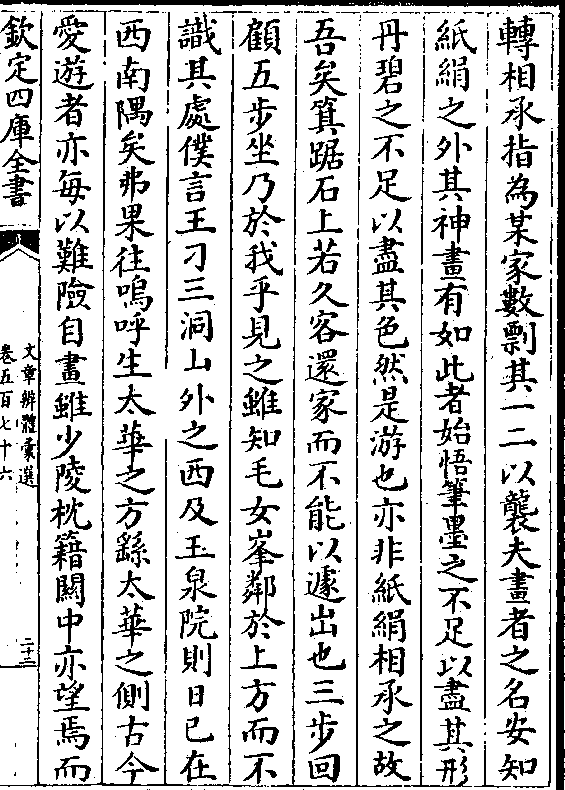 轉相承指為某家數剽其一二以襲夫畫者之名安知
紙絹之外其神畫有如此者始悟筆墨之不足以盡其形
丹碧之不足以盡其色然是游也亦非紙絹相承之故
吾矣箕踞石上若久客還家而不能以遽出也三步回
顧五步坐乃於我乎見之雖知毛女峯鄰於上方而不
識其處僕言王刁三洞山外之西及玉泉院則日已在
西南隅矣弗果往嗚呼生太華之方繇太華之側古今
愛遊者亦每以難險自畫雖少陵枕籍關中亦望焉而
欽定四庫全書
文章辨體彙選
卷五百七十六
二十三